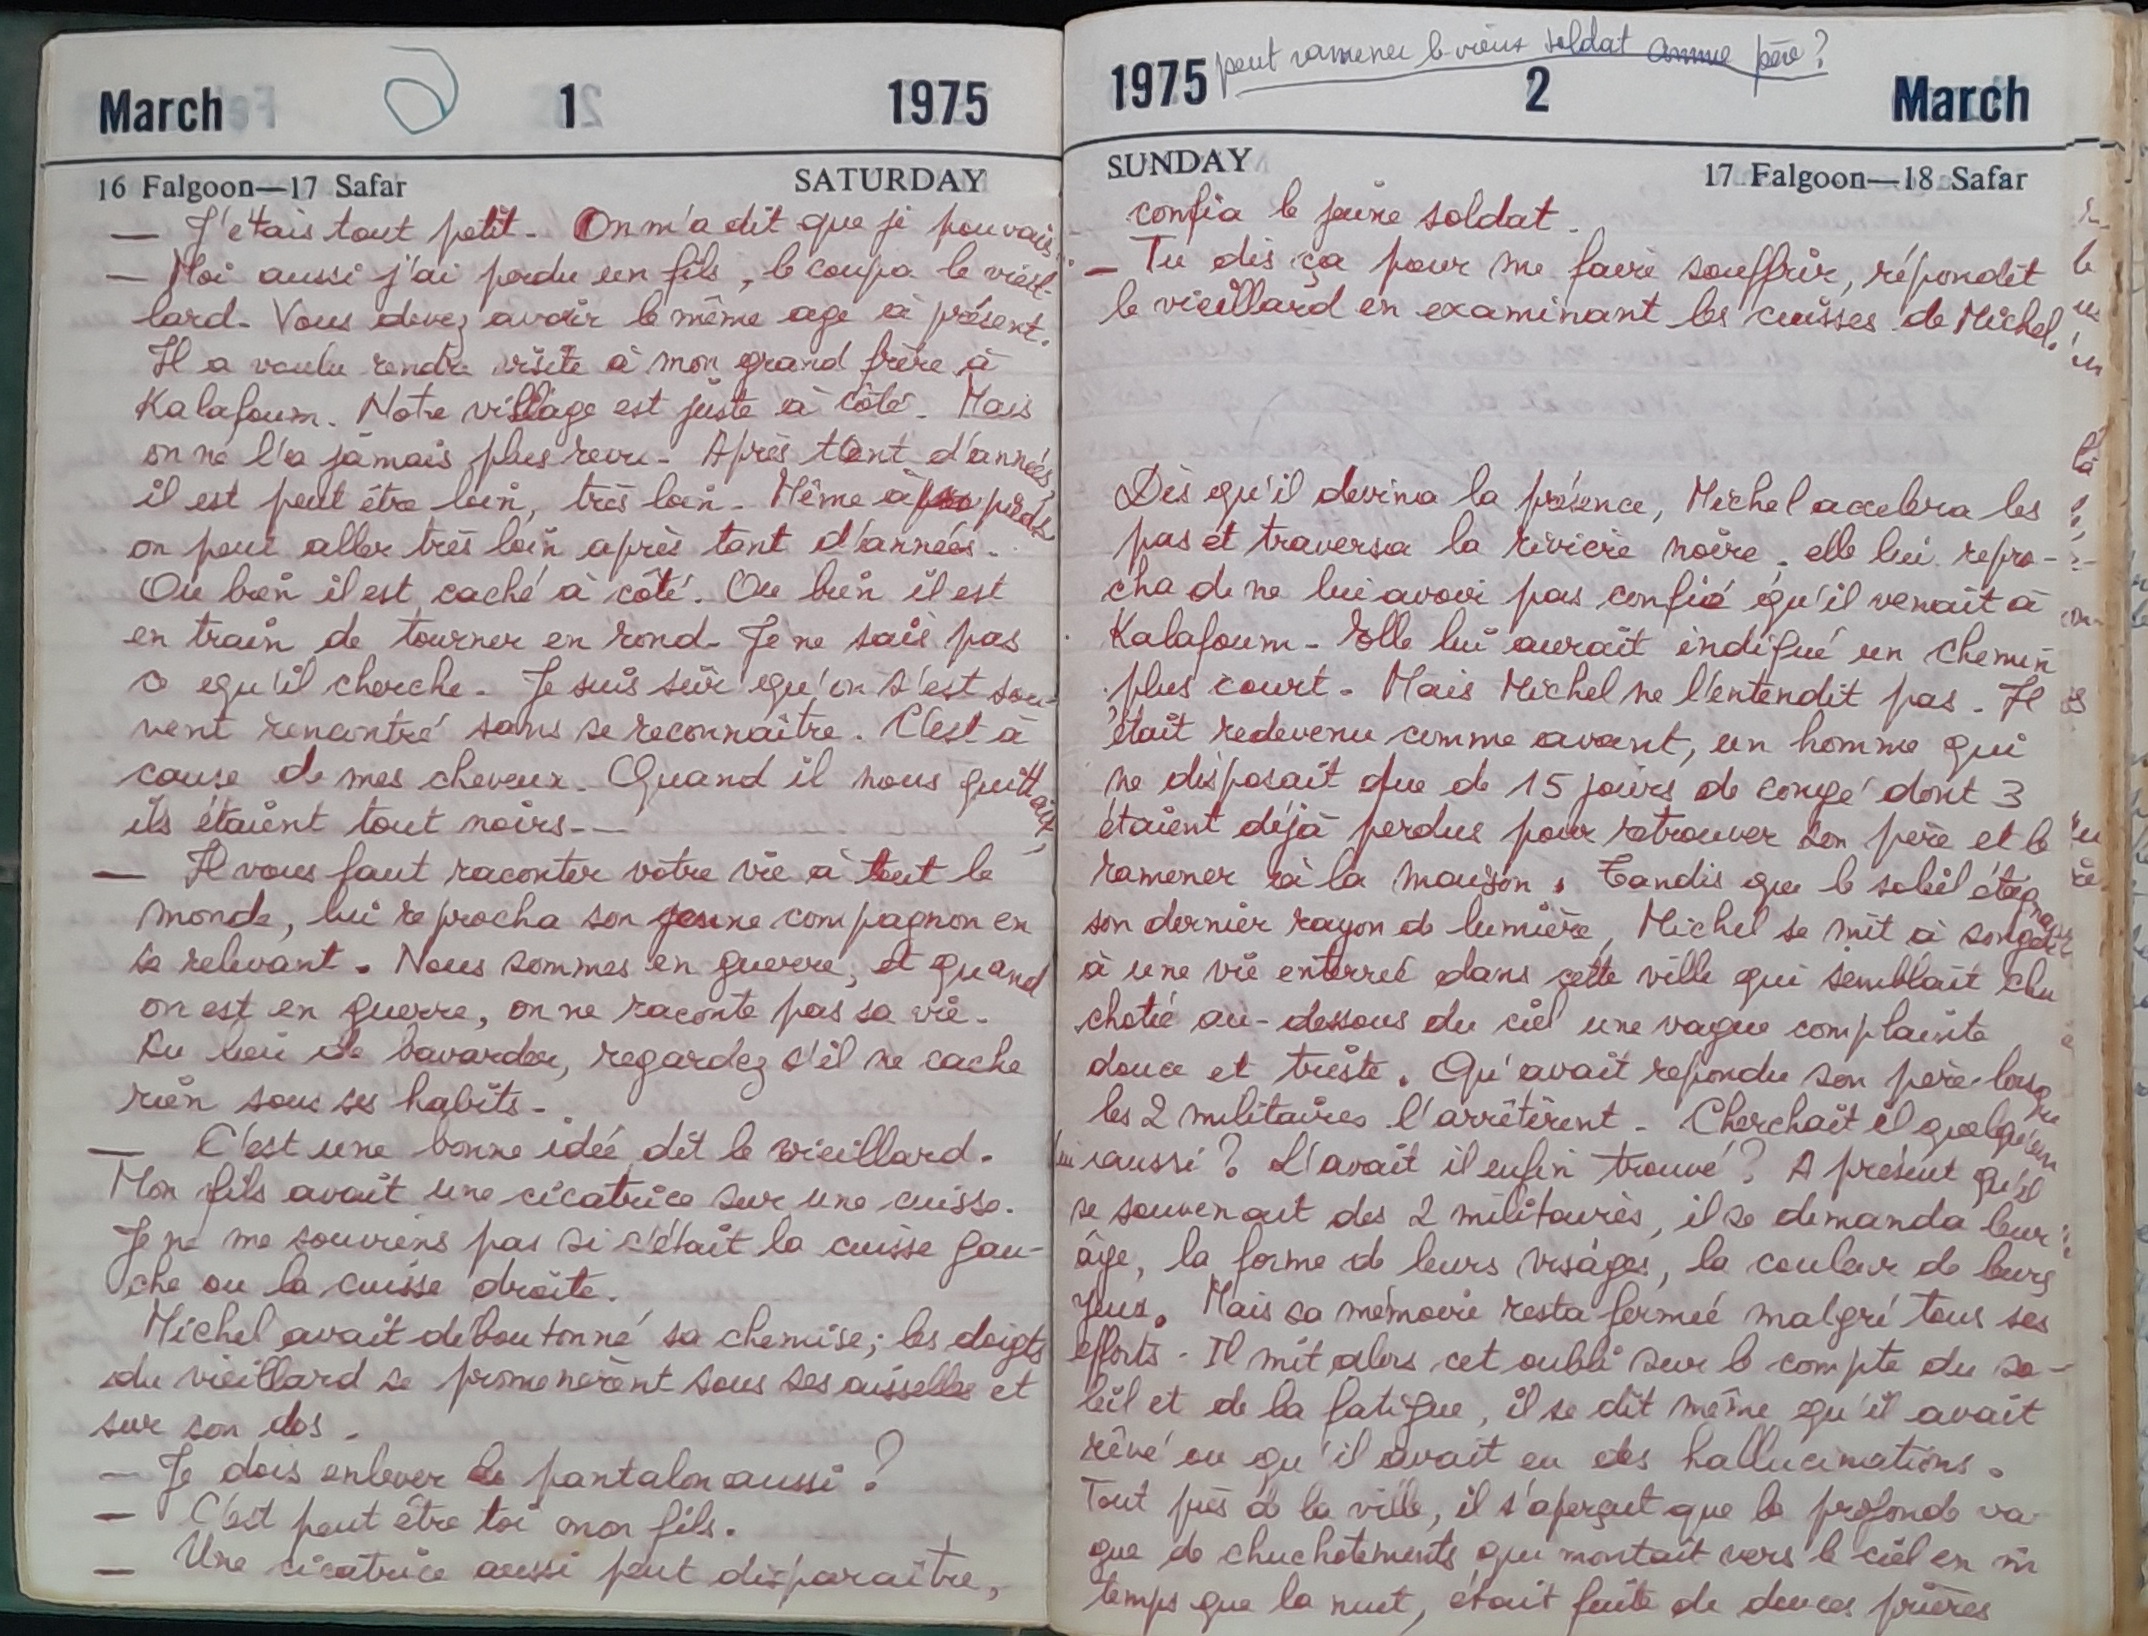 March 1 1975
16 Falgoon—17 Safar SATURDAY
— J'étais tout petit. On m'a dit que je pouvais
— Moi aussi j'ai perdu un fils, le coupa le vieil-
lard. Vous devez avoir le même age à présent.
Il a voulu rendre visite à mon grand frère à
Kalafoum. Notre village est juste à côté. Mais
on ne l'a jamais plus revu. Après tant d'années,
il est peut être loin, très loin. Même à pieds
on peut aller très loin après tant d'années.
Ou bien il est caché à côté. Ou bien il est
en train de tourner en rond. Je ne sais pas
ce qu'il cherche. Je suis sûr qu'on s'est sou-
vent rencontré sans se reconnaître. C'est à
cause de mes cheveux. Quand il nous quittait,
ils étaient tout noirs.—
— Il vous faut raconter votre vie à tout le
monde, lui reprocha son jeune compagnon en
se relevant. Nous sommes en guerre, et quand
on est en guerre, on ne raconte pas sa vie.
Au lieu de bavarder, regardez s'il ne cache
rien sous ses habits.
— C'est une bonne idée dit le vieillard.
Mon fils avait une cicatrice sur une cuisse.
Je ne me souviens pas si c'était la cuisse gau-
che ou la cuisse droite.
Michel avait déboutonné sa chemise; les doigts
du vieillard se promenèrent sous ses aisselles et
sur son dos.
— Je dois enlever le pantalon aussi?
— C'est peut être toi mon fils.
— Une cicatrice aussi peut disparaître,
peut ramener le vieux soldat comme père?
1975 2 March
SUNDAY 17 Falgoon—18 Safar
confia le jeune soldat.
— Tu dis ça pour me faire souffrir, répondit
le vieillard en examinant les cuisses de Michel.
Dès qu'il devina la présence, Michel accelera les
pas et traversa la rivière noire. elle lui repro-
cha de ne lui avoir pas confié qu'il venait à
Kalafoum. Elle lui aurait indiqué un chemin
plus court. Mais Michel ne l'entendit pas. Il
était redevenu comme avant, un homme qui
ne disposait que de 15 jours de congé dont 3
étaient déjà perdus pour retrouver son père et le
ramener à la maison. Tandis que le soleil éteignait
son dernier rayon de lumière, Michel se mit à songer
à une vie enterrée dans cette ville qui semblait chu
choté au-dessous du ciel une vague complainte
douce et triste. Qu'avait repondu son père lorsque
les 2 militaires l'arrêtèrent. Cherchait il quelqu'un
lui aussi? L'avait il enfin trouvé? A présent qu'il
se souvenait des 2 militaires, il se demanda leur
âge, la forme de leurs visages, la couleur de leurs
yeux. Mais sa mémoire resta fermée malgré tous ses
efforts. Il mit alors cet oubli sur le compte du so-
leil et de la fatigue, il se dit même qu'il avait
rêvé ou qu'il avait eu des hallucinations.
Tout près de la ville, il s'aperçut que la profonde va
gue de chuchotements qui montait vers le ciel en m̂
temps que la nuit, était faite de douces prières